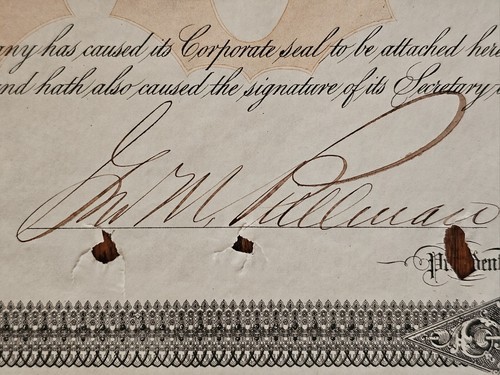 any has caused its Corporate seal to be attached here
and hath also caused the signature of its Secretary
Geo M. Pullman
President